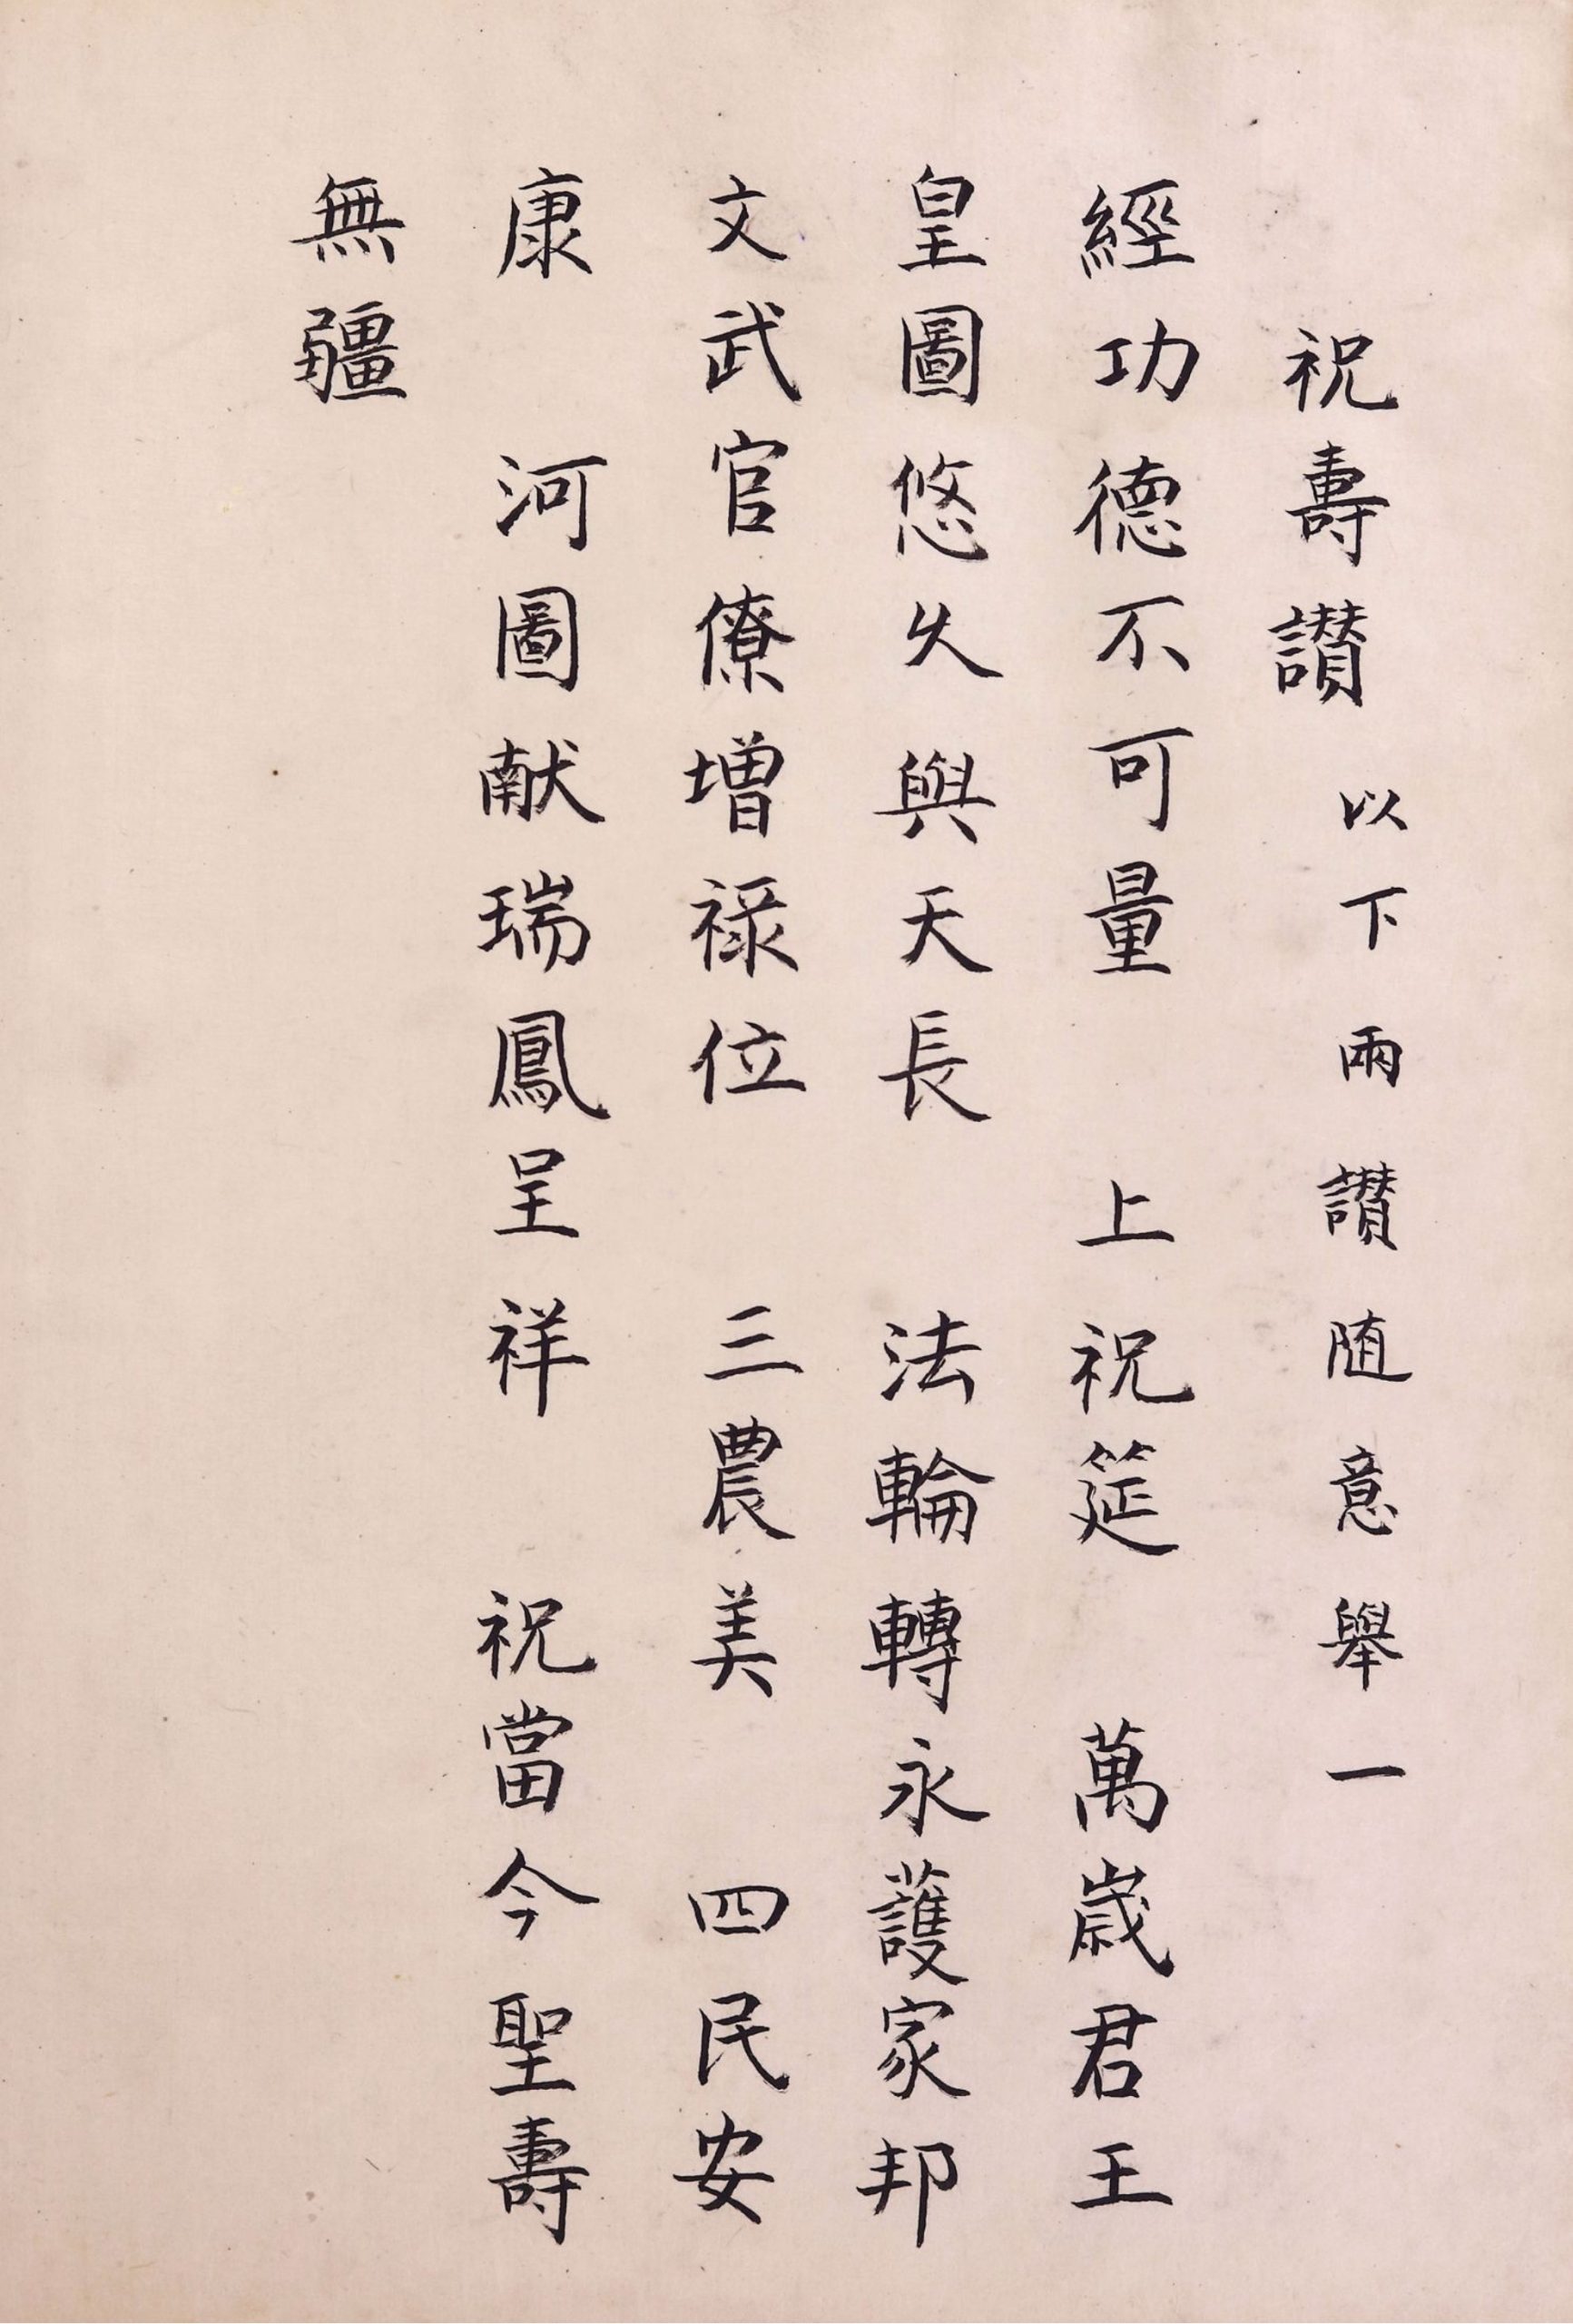 祝壽讃 以下兩讃随意舉一
經功德不可量 上祝筵 萬歳君王
皇圖悠久與天長 法輪轉永護家邦
文武官僚増禄位 三農美 四民安
康 河圖献瑞鳳呈祥 祝當今聖壽
無疆